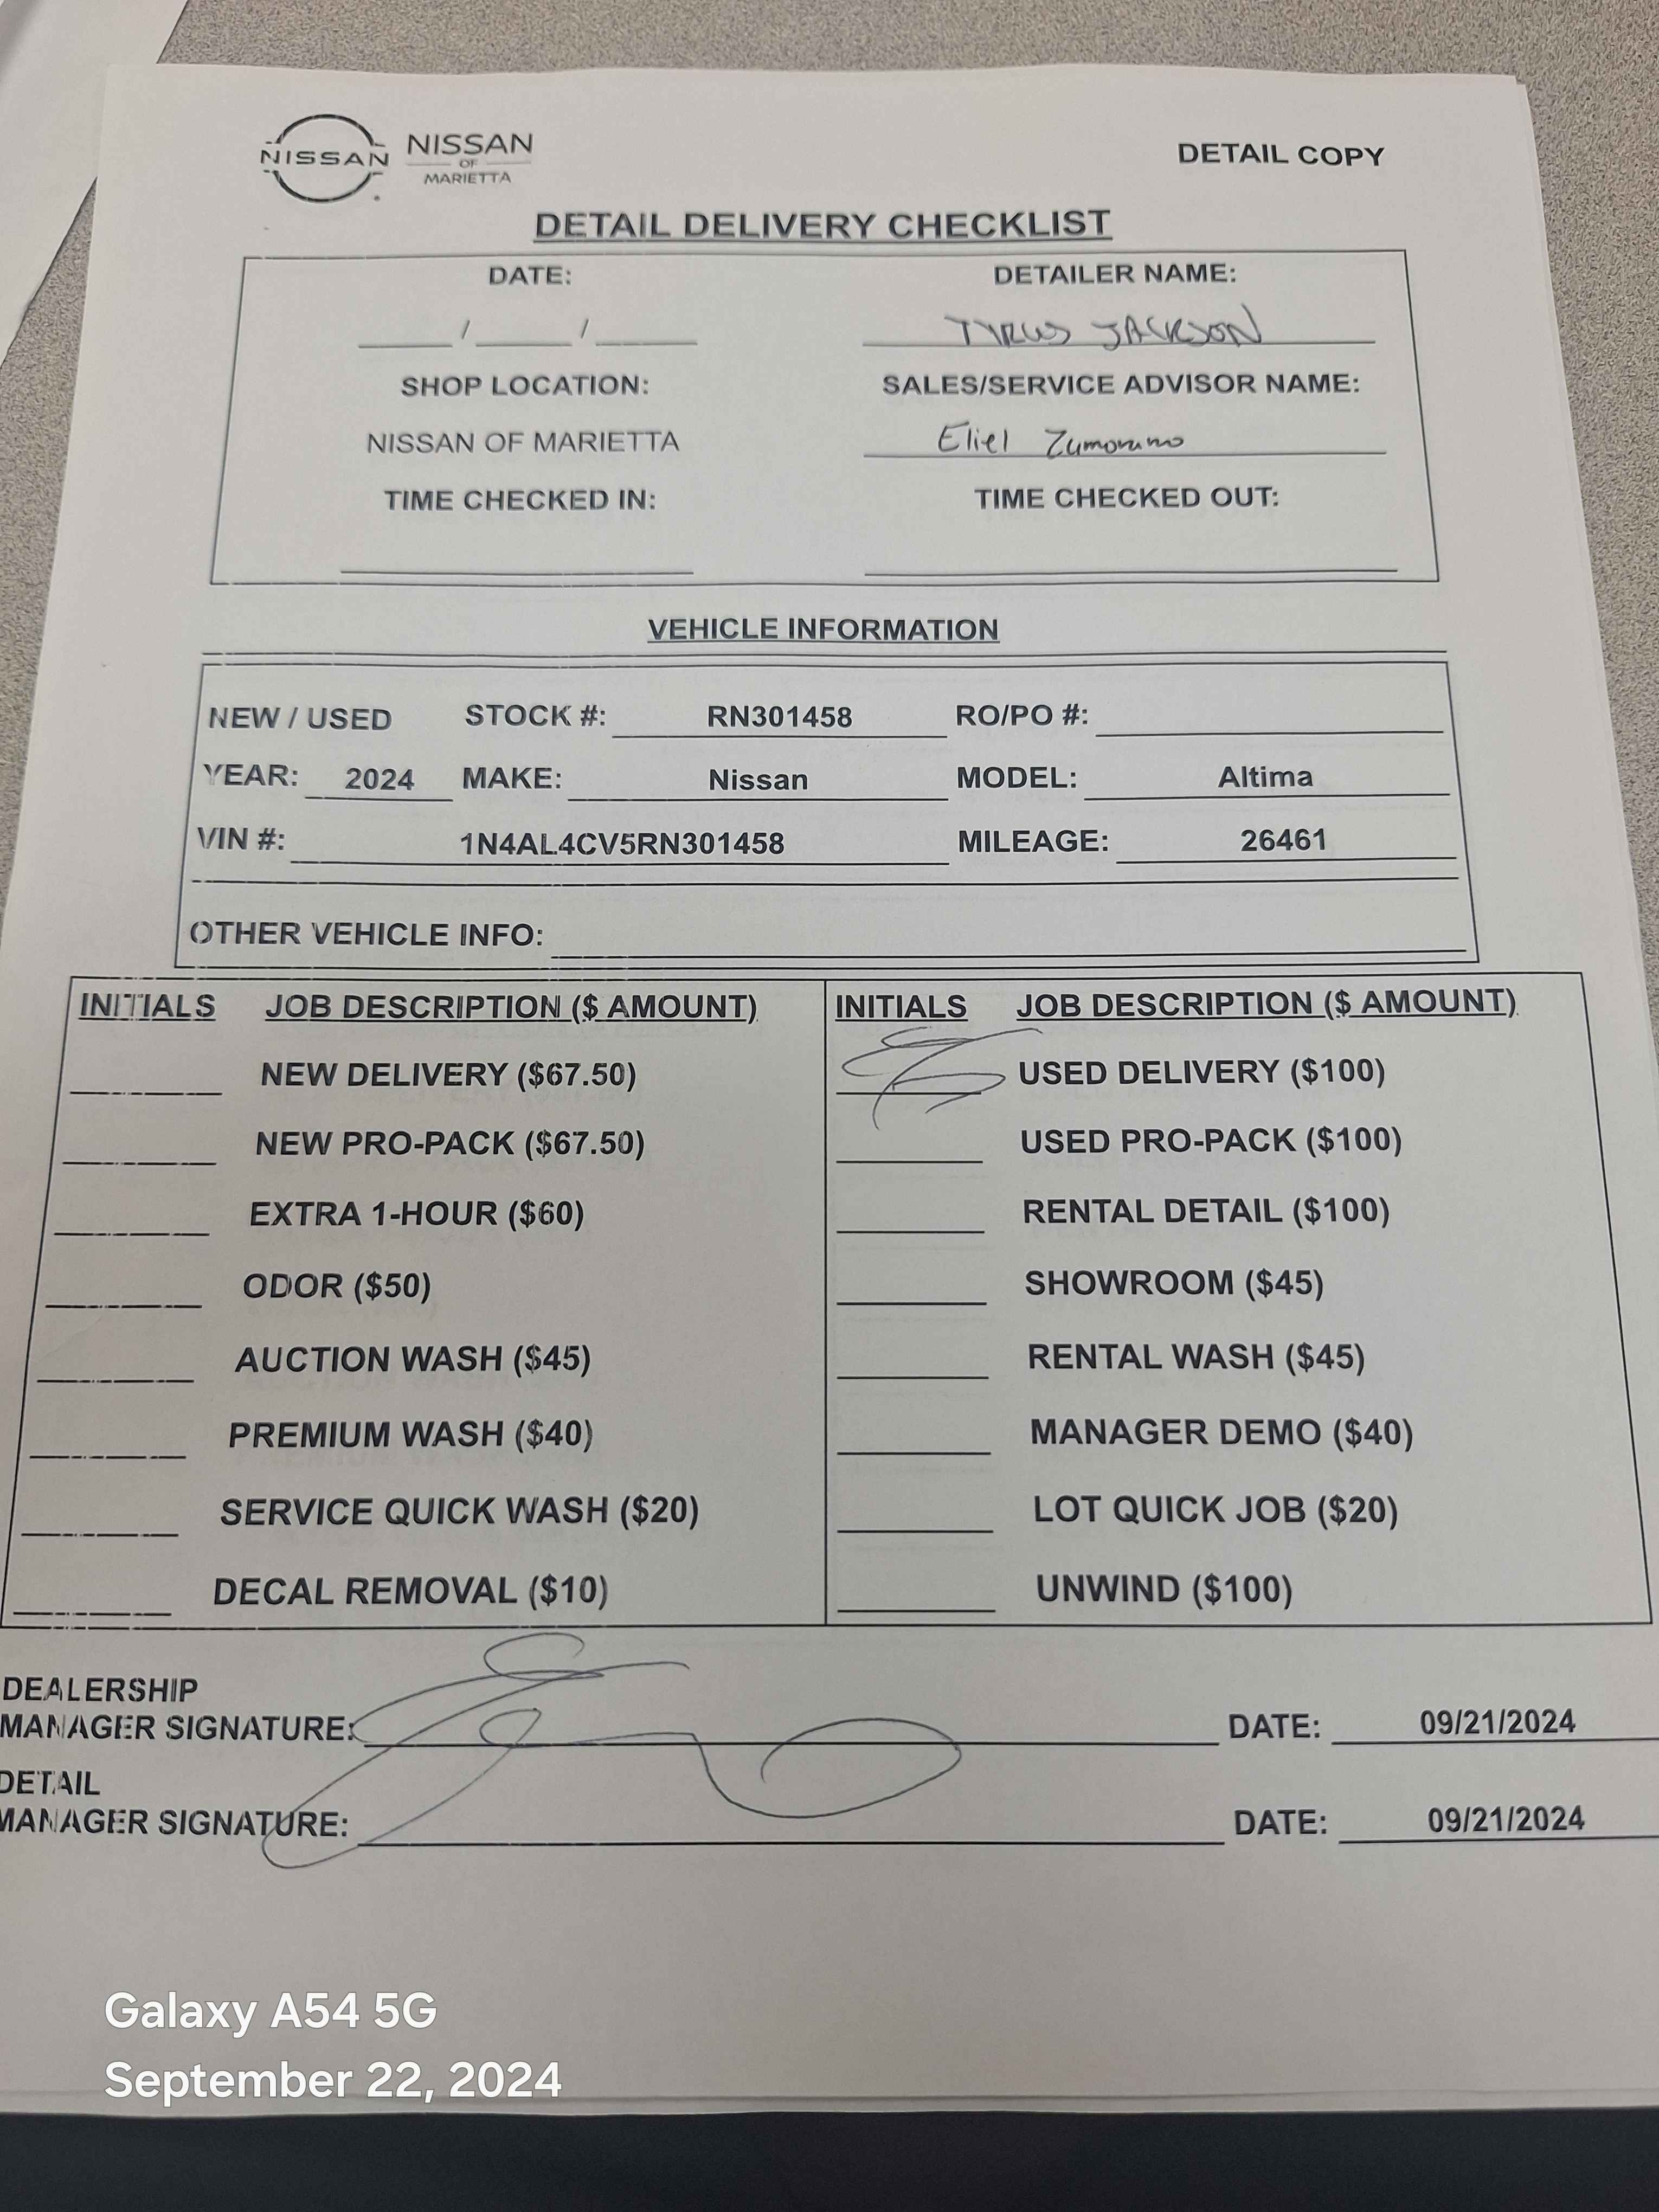 NISSAN NISSAN OF MARIETTA
DETAIL COPY
DETAIL DELIVERY CHECKLIST
DATE: DETAILER NAME:
/ / TYRUS JACKSON
SHOP LOCATION: SALES/SERVICE ADVISOR NAME:
NISSAN OF MARIETTA Eliel
TIME CHECKED IN: TIME CHECKED OUT:
VEHICLE INFORMATION
NEW / USED STOCK #: RN301458 RO/PO #:
YEAR: 2024 MAKE: Nissan MODEL: Altima
VIN #: 1N4AL4CV5RN301458 MILEAGE: 26461
OTHER VEHICLE INFO:
INITIALS JOB DESCRIPTION ($ AMOUNT) INITIALS JOB DESCRIPTION ($ AMOUNT)
NEW DELIVERY ($67.50) USED DELIVERY ($100)
NEW PRO-PACK ($67.50) USED PRO-PACK ($100)
EXTRA 1-HOUR ($60) RENTAL DETAIL ($100)
ODOR ($50) SHOWROOM ($45)
AUCTION WASH ($45) RENTAL WASH ($45)
PREMIUM WASH ($40) MANAGER DEMO ($40)
SERVICE QUICK WASH ($20) LOT QUICK JOB ($20)
DECAL REMOVAL ($10) UNWIND ($100)
DEALERSHIP
MANAGER SIGNATURE: DATE: 09/21/2024
DETAIL
MANAGER SIGNATURE: DATE: 09/21/2024
Galaxy A54 5G
September 22, 2024